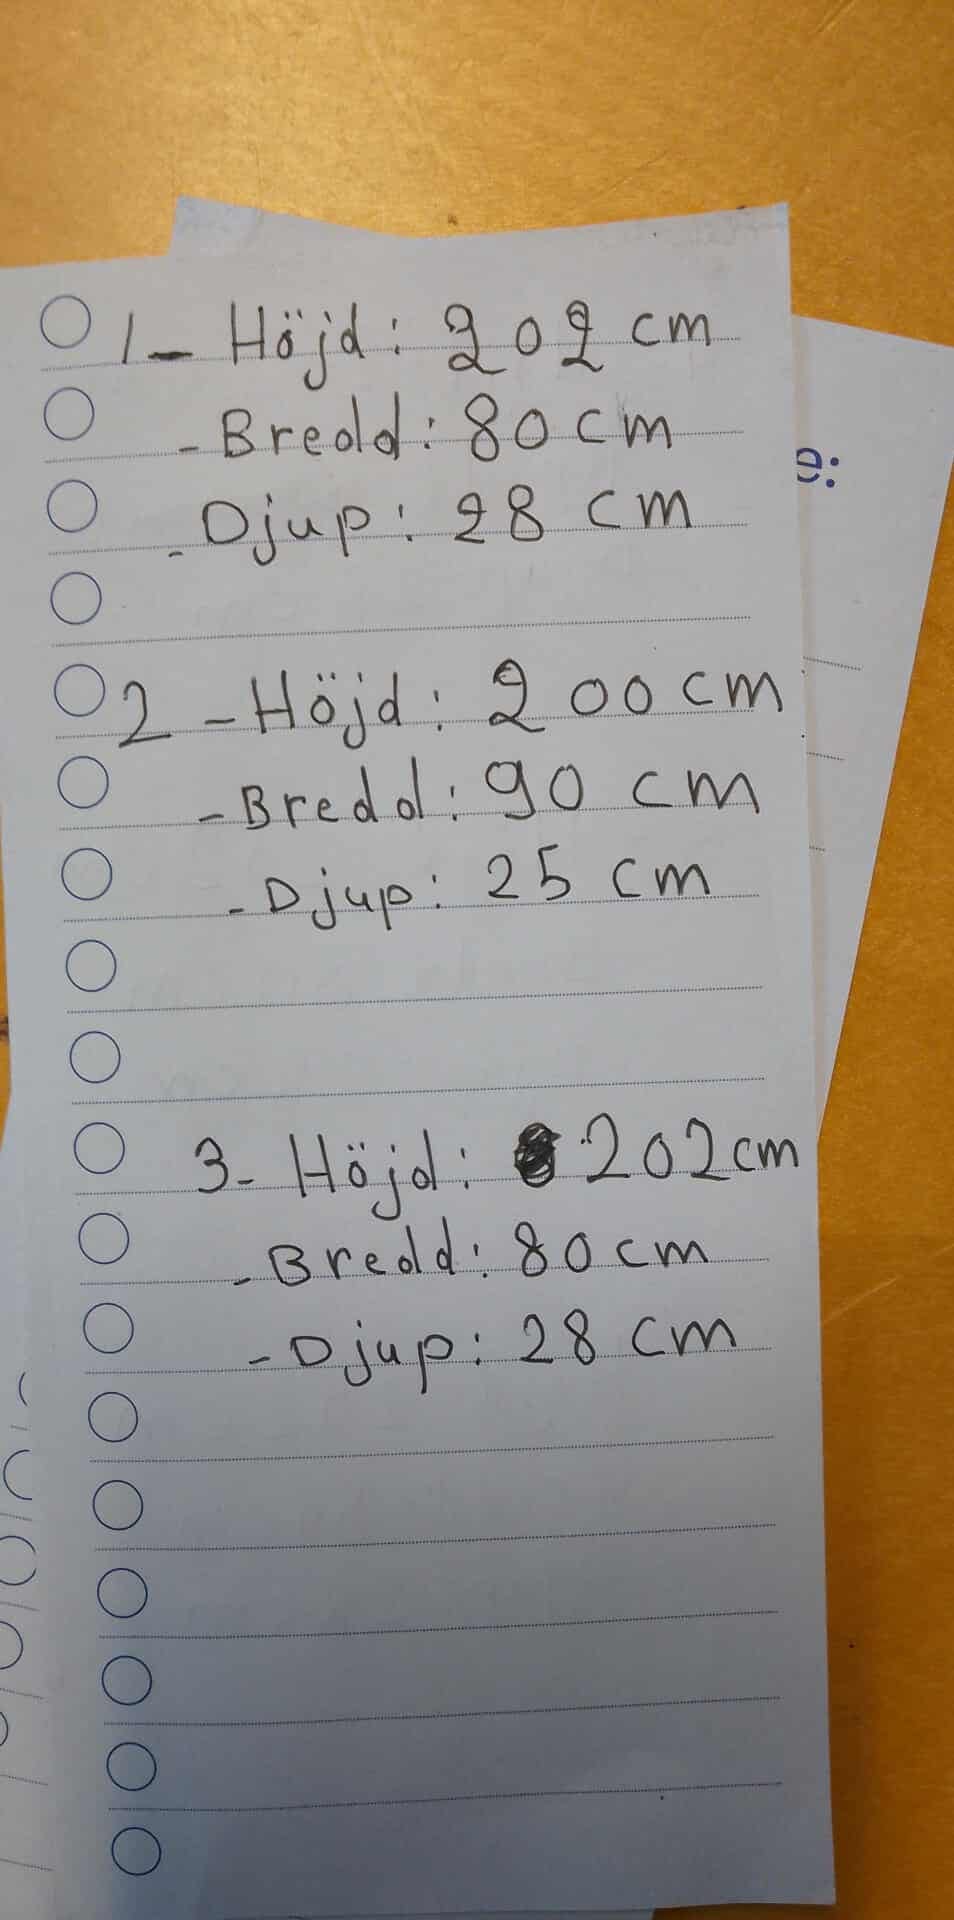 1- Höjd: 202 cm
- Bredd: 80 cm
- Djup: 28 cm
2 - Höjd: 200 cm
- Bredd: 90 cm
- Djup: 25 cm
3- Höjd: 202 cm
- Bredd: 80 cm
- Djup: 28 cm
e: